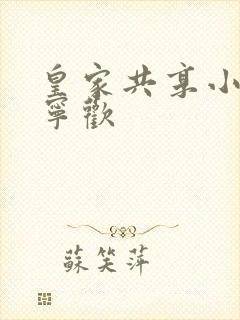 皇家共享小
寧歡
蘇笑萍